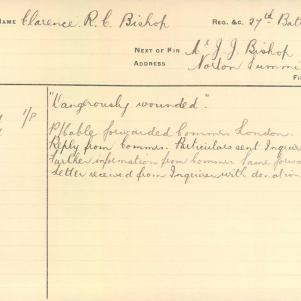 NAME Clarence. R. C. Bishop REG. &C. 27th Bat
NEXT OF KIN Mr J. J. Bishop
ADDRESS Norton Summi
FI
1/P "Dangerously wounded".
P/Cable forwarded Commr London.
Reply from Commr. Particulars sent Inquire
Further information from Commr same forw
Letter received from Inquirer with donation